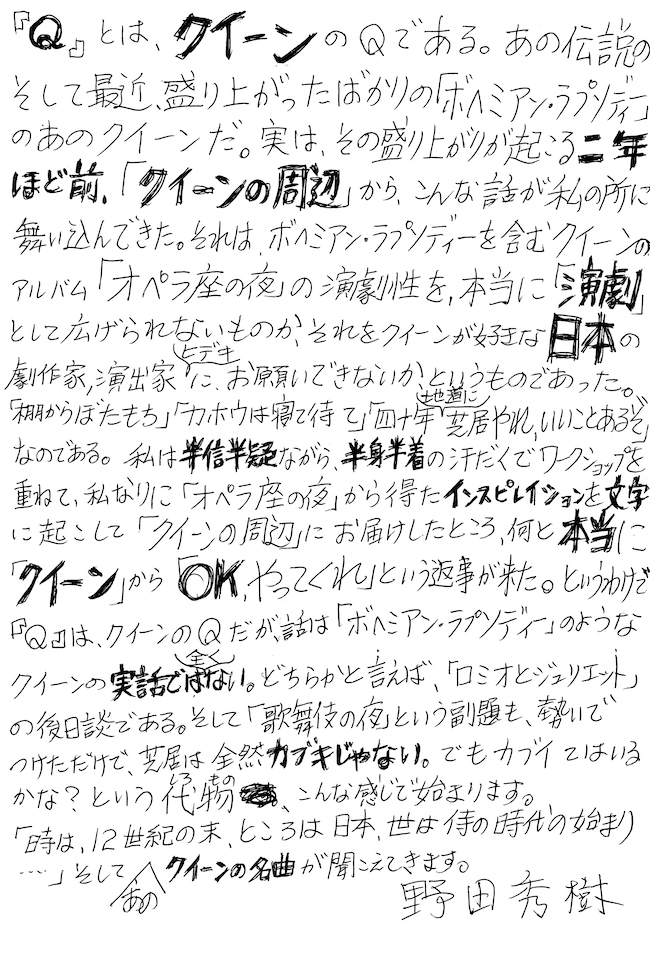 『Q』とは、クイーンのQである。あの伝説の
そして最近、盛り上がったばかりの「ボヘミアン・ラプソディー」
のあのクイーンだ。実は、その盛り上がりが起こる二年
ほど前、「クイーンの周辺」から、こんな話が私の所に
舞い込んできた。それは、ボヘミアン・ラプソディーを含むクイーンの
アルバム「オペラ座の夜」の演劇性を、本当に「演劇」
として広げられないものか、それをクイーンが好きな日本の
劇作家、演出家ヒデキに、お願いできないか、というものであった。
「棚からぼたもち」「カホウは寝て待て」「四十年地道に芝居やれ、いいことあるぞ」
なのである。私は半信半疑ながら、半身半着の汗だくでワークショップを
重ねて、私なりに「オペラ座の夜」から得たインスピレイションを文字
に起こして「クイーンの周辺」にお届けしたところ、何と本当に
「クイーン」から「OK、やってくれ」という返事が来た。というわけで
『Q』は、クイーンのQだが、話は「ボヘミアン・ラプソディー」のような
クイーンの実話では全くない。どちらかと言えば、「ロミオとジュリエット」
の後日談である。そして「歌舞伎の夜」という副題も、勢いで
つけただけで、芝居は全然カブキじゃない。でもカブイてはいる
かな？という代物しろもの、こんな感じで始まります。
「時は、12世紀の末、ところは日本、世は侍の時代の始まり
……」そしてあのクイーンの名曲が聞こえてきます。
野田秀樹